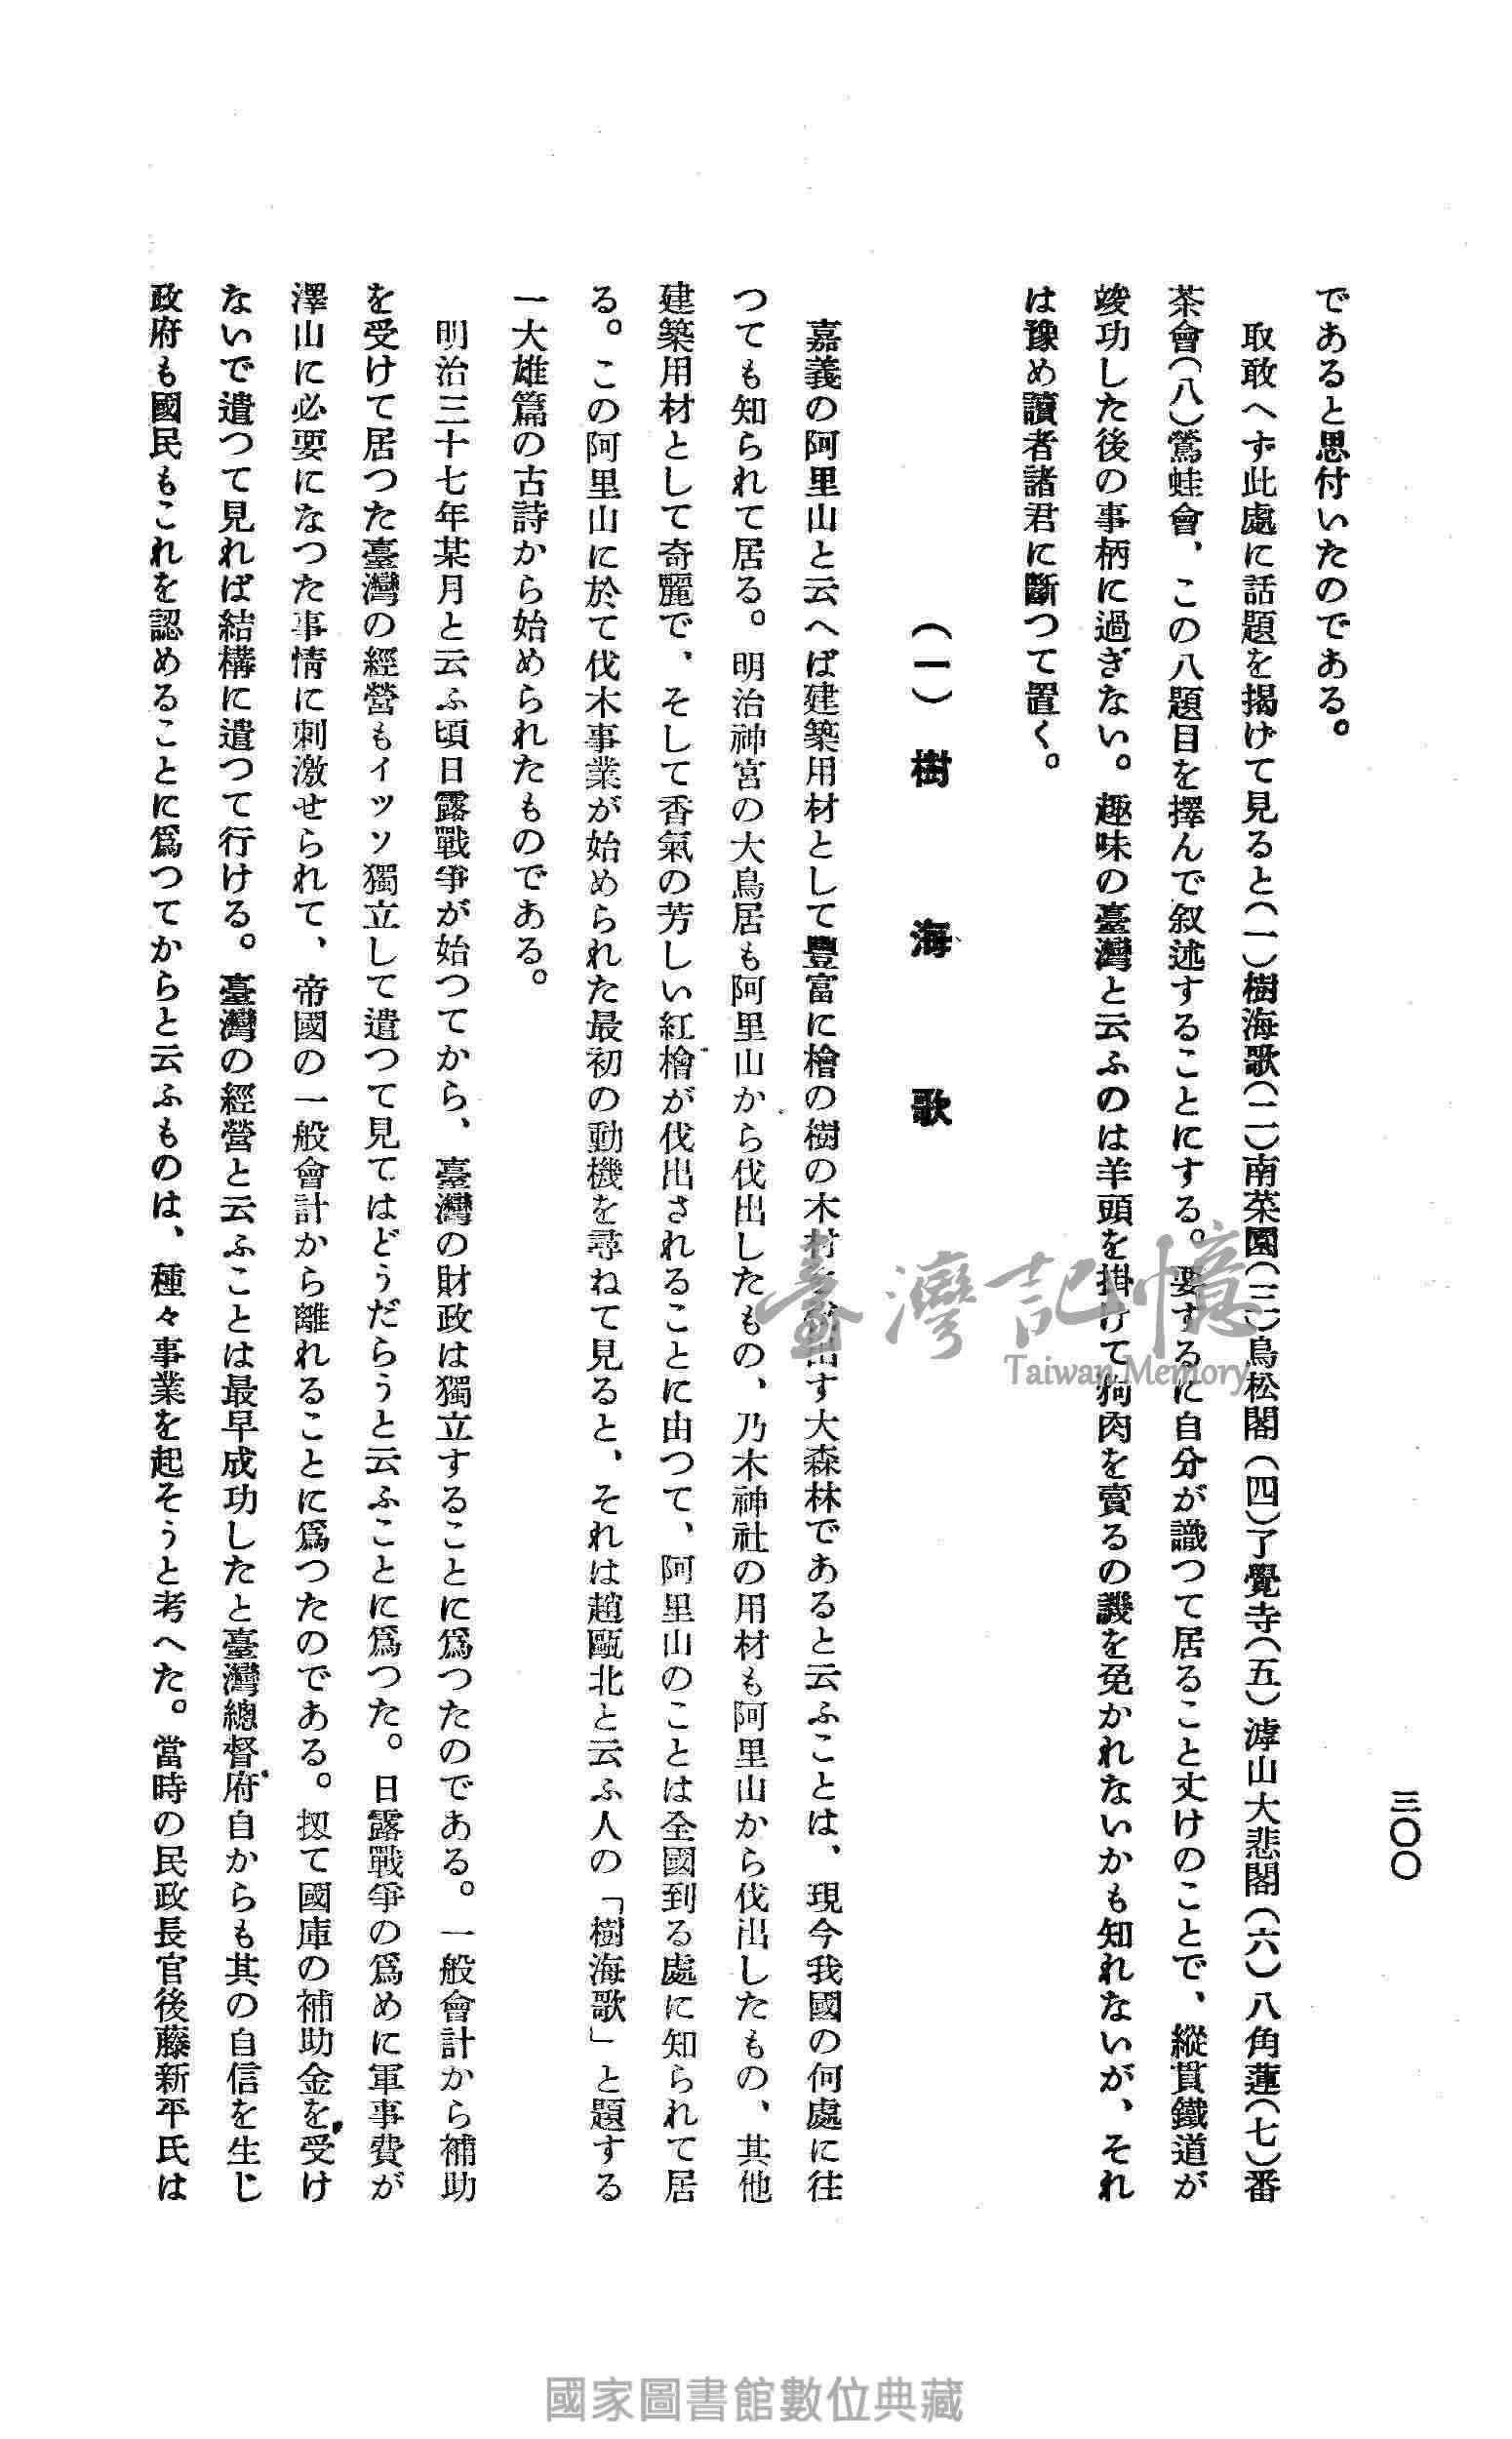 三〇〇
であると思付いたのである。
取敢へず此處に話題を揭げて見ると(一)樹海歌(二)南菜園(三)鳥松閣(四)了覺寺(五)滹山大悲閣(六)八角蓮(七)番
茶會(八)鶯蛙會、この八題目を擇んで叙述することにする。要するに自分が識つて居ること丈けのことで、縱貫鐵道が
竣功した後の事柄に過ぎない。趣味の臺灣と云ふのは羊頭を掛けて狗肉を賣るの譏を免かれないかも知れないが、それ
は豫め讀者諸君に斷つて置く。
(一)樹海歌
嘉義の阿里山と云へば建築用材として豐富に檜の樹の木材を出す大森林であると云ふことは、現今我國の何處に往
つても知られて居る。明治神宮の大鳥居も阿里山から伐出したもの、乃木神社の用材も阿里山から伐出したもの、其他
建築用材として奇麗で、そして香氣の芳しい紅檜が伐出されることに由つて、阿里山のことは全國到る處に知られて居
る。この阿里山に於て伐木事業が始められた最初の動機を尋ねて見ると、それは趙甌北と云ふ人の「樹海歌」と題する
一大雄篇の古詩から始められたものである。
明治三十七年某月と云ふ頃日露戰爭が始つてから、臺灣の財政は獨立することに爲つたのである。一般會計から補助
を受けて居つた臺灣の經營もイッソ獨立して遣つて見てはどうだらうと云ふことに爲つた。日露戰爭の爲めに軍事費が
澤山に必要になつた事情に刺激せられて、帝國の一般會計から離れることに爲つたのである。扨て國庫の補助金を受け
ないで遣つて見れば結構に遣つて行ける。臺灣の經營と云ふことは最早成功したと臺灣總督府自からも其の自信を生じ
政府も國民もこれを認めることに爲つてからと云ふものは、種々事業を起そうと考へた。當時の民政長官後藤新平氏は
臺灣記憶
Taiwan Memory
國家圖書館數位典藏